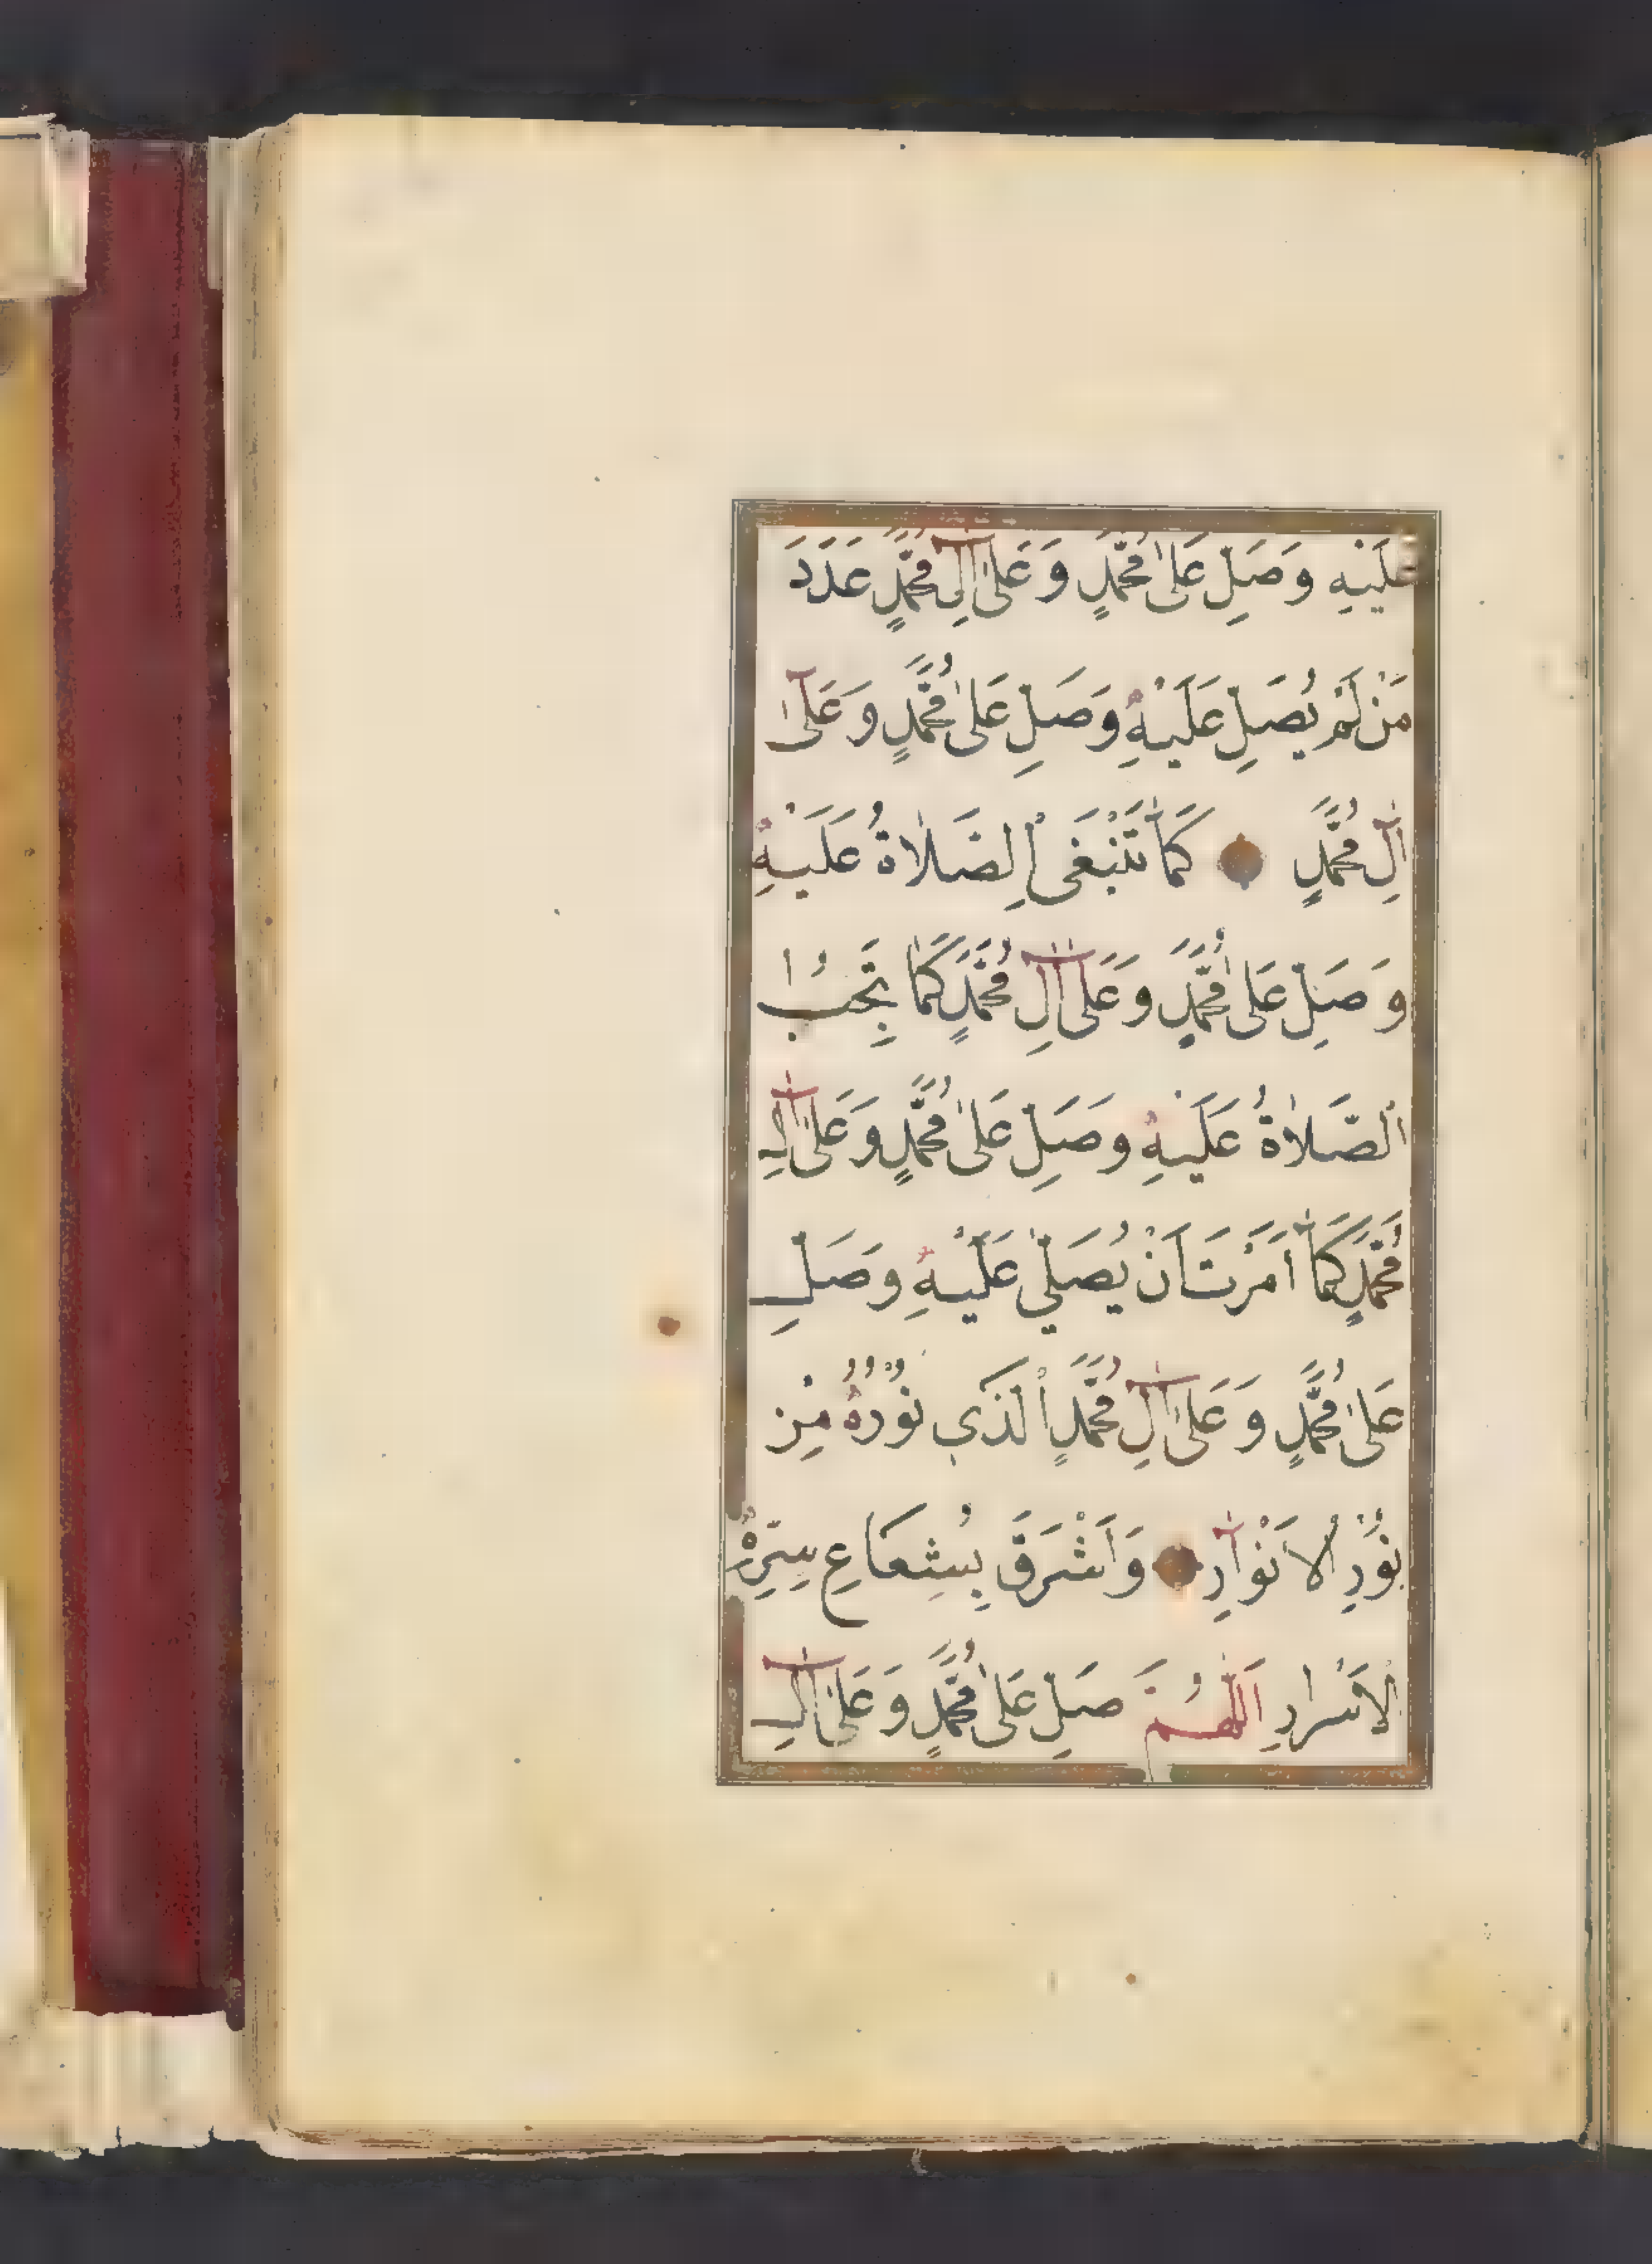 عَلَيْهِ وَصَلِّ عَلَىٰ مُحَمَّدٍ وَعَلَىٰ آلِ مُحَمَّدٍ عَدَدَ
مَنْ لَمْ يُصَلِّ عَلَيْهِ وَصَلِّ عَلَىٰ مُحَمَّدٍ وَعَلَىٰ
آلِ مُحَمَّدٍ كَمَا تَنْبَغَى الصَّلَاةُ عَلَيْهِ
وَصَلِّ عَلَىٰ مُحَمَّدٍ وَعَلَىٰ آلِ مُحَمَّدٍ كَمَا تَجِبُ
الصَّلَاةُ عَلَيْهِ وَصَلِّ عَلَىٰ مُحَمَّدٍ وَعَلَىٰ آلِ
مُحَمَّدٍ كَمَا أَمَرْتَ أَنْ يُصَلِّي عَلَيْهِ وَصَلِّ
عَلَىٰ مُحَمَّدٍ وَعَلَىٰ آلِ مُحَمَّدٍ الَّذِي نُورُهُ مِنْ
نُورِ الْأَنْوَارِ وَأَشْرَقَ بِشُعَاعِ سِرِّهِ
الْأَسْرَارِ اَللّٰهُمَّ صَلِّ عَلَىٰ مُحَمَّدٍ وَعَلَىٰ آلِ